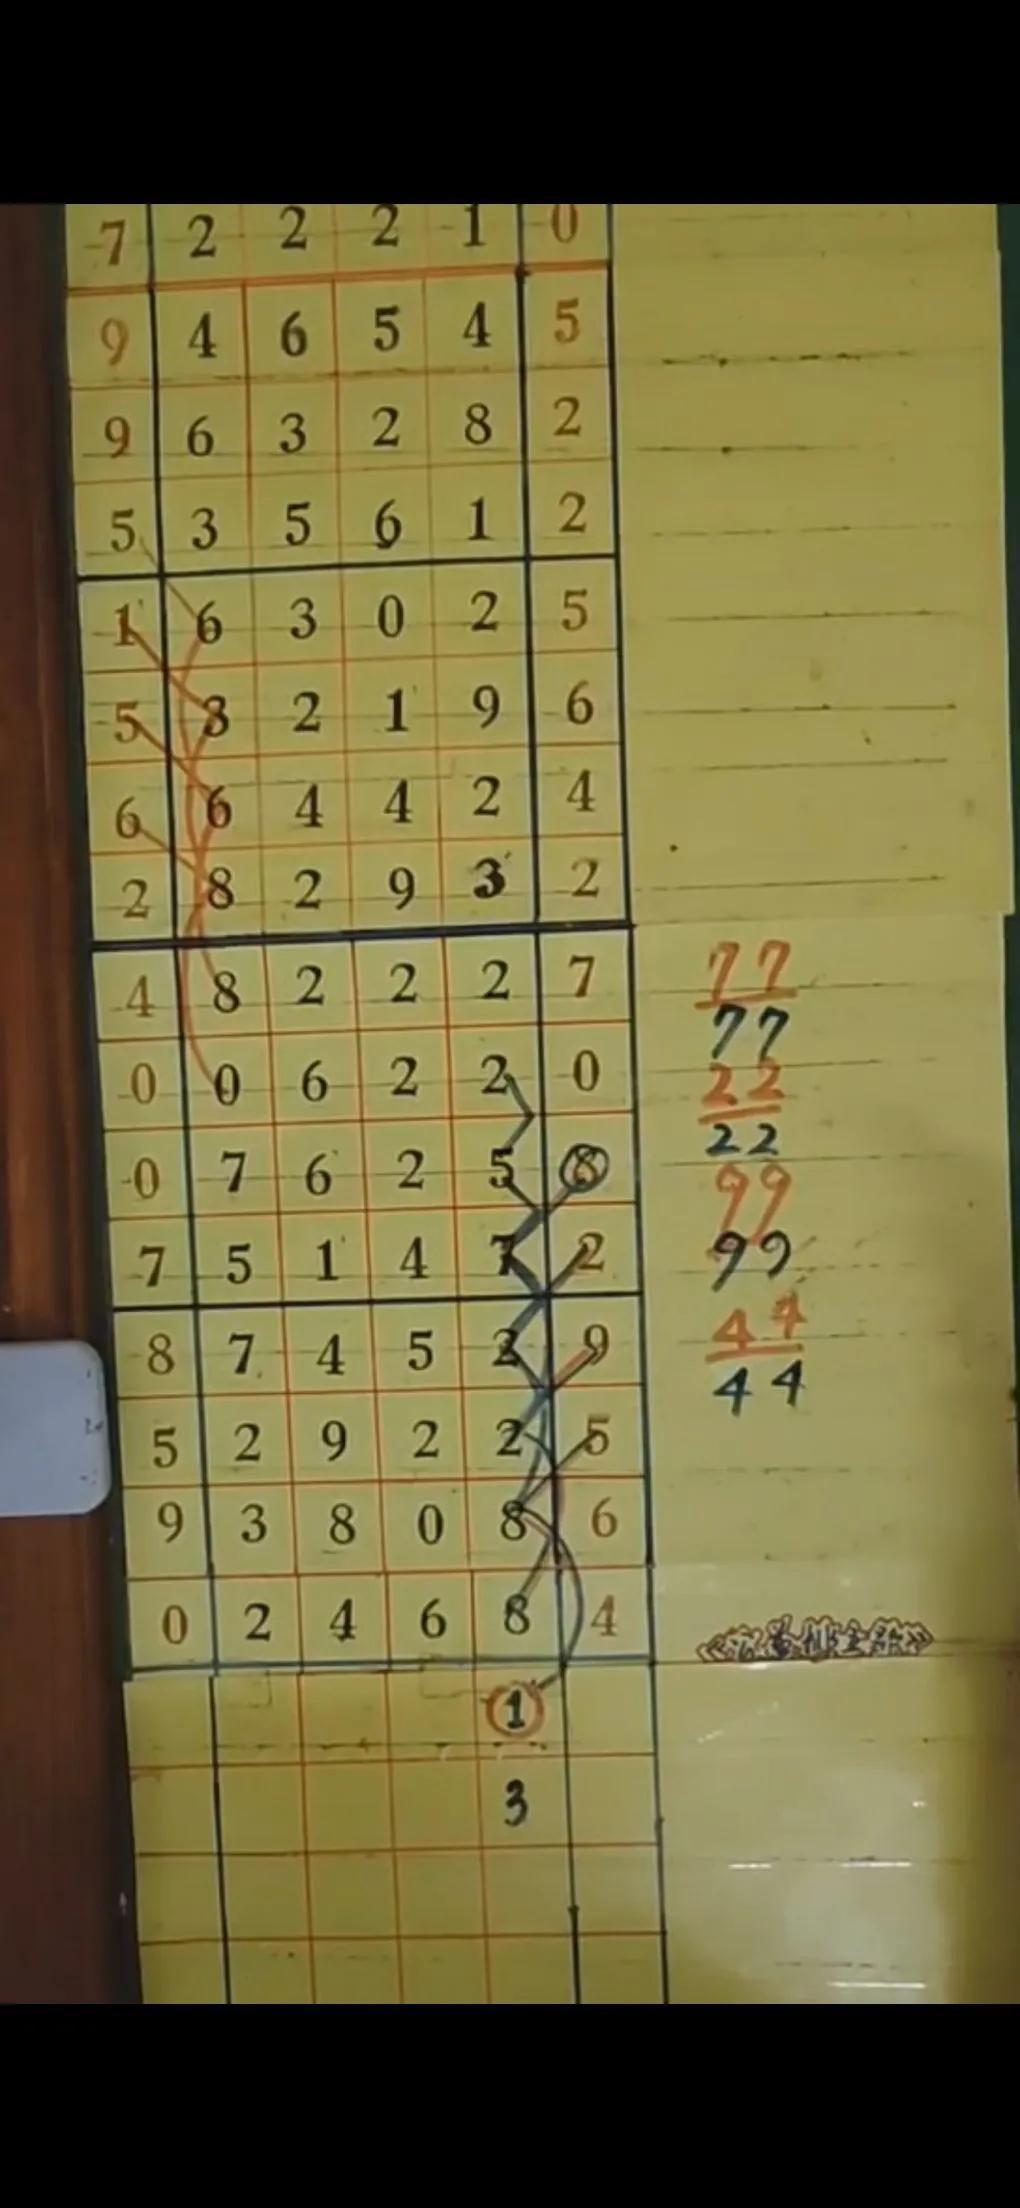 7 2 2 2 1 0
9 4 6 5 4 5
9 6 3 2 8 2
5 3 5 6 1 2
1 6 3 0 2 5
5 3 2 1 9 6
6 6 4 4 2 4
2 8 2 9 3 2
4 8 2 2 2 7
77
0 0 6 2 2 0
77
22
0 7 6 2 5 8
22
99
7 5 1 4 7 2
99
8 7 4 5 2 9
44
44
5 2 9 2 2 5
9 3 8 0 8 6
0 2 4 6 8 4
1
3